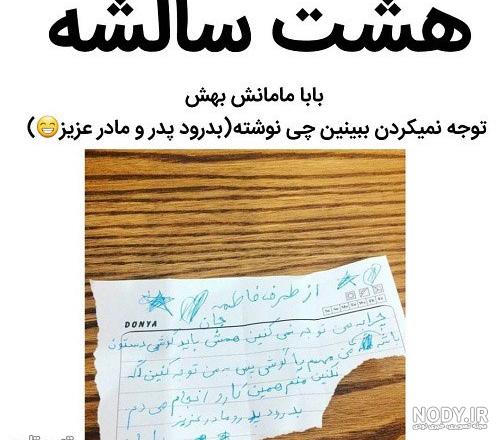 هشت سالشه
بابا مامانش بهش
توجه نمیکردن ببینین چی نوشته(بدرود پدر و مادر عزیز😁)
از طرف فاطمه
جان
DONYA
چرا به من توجه نمی کنین همش باید گوشی دستتون
باشه من مهمم یا گوشی پس به من توجه کنین اگه
نکنین منم همین کارو انجام می دم
بدرود پدر و مادر عزیز
NODY.IR